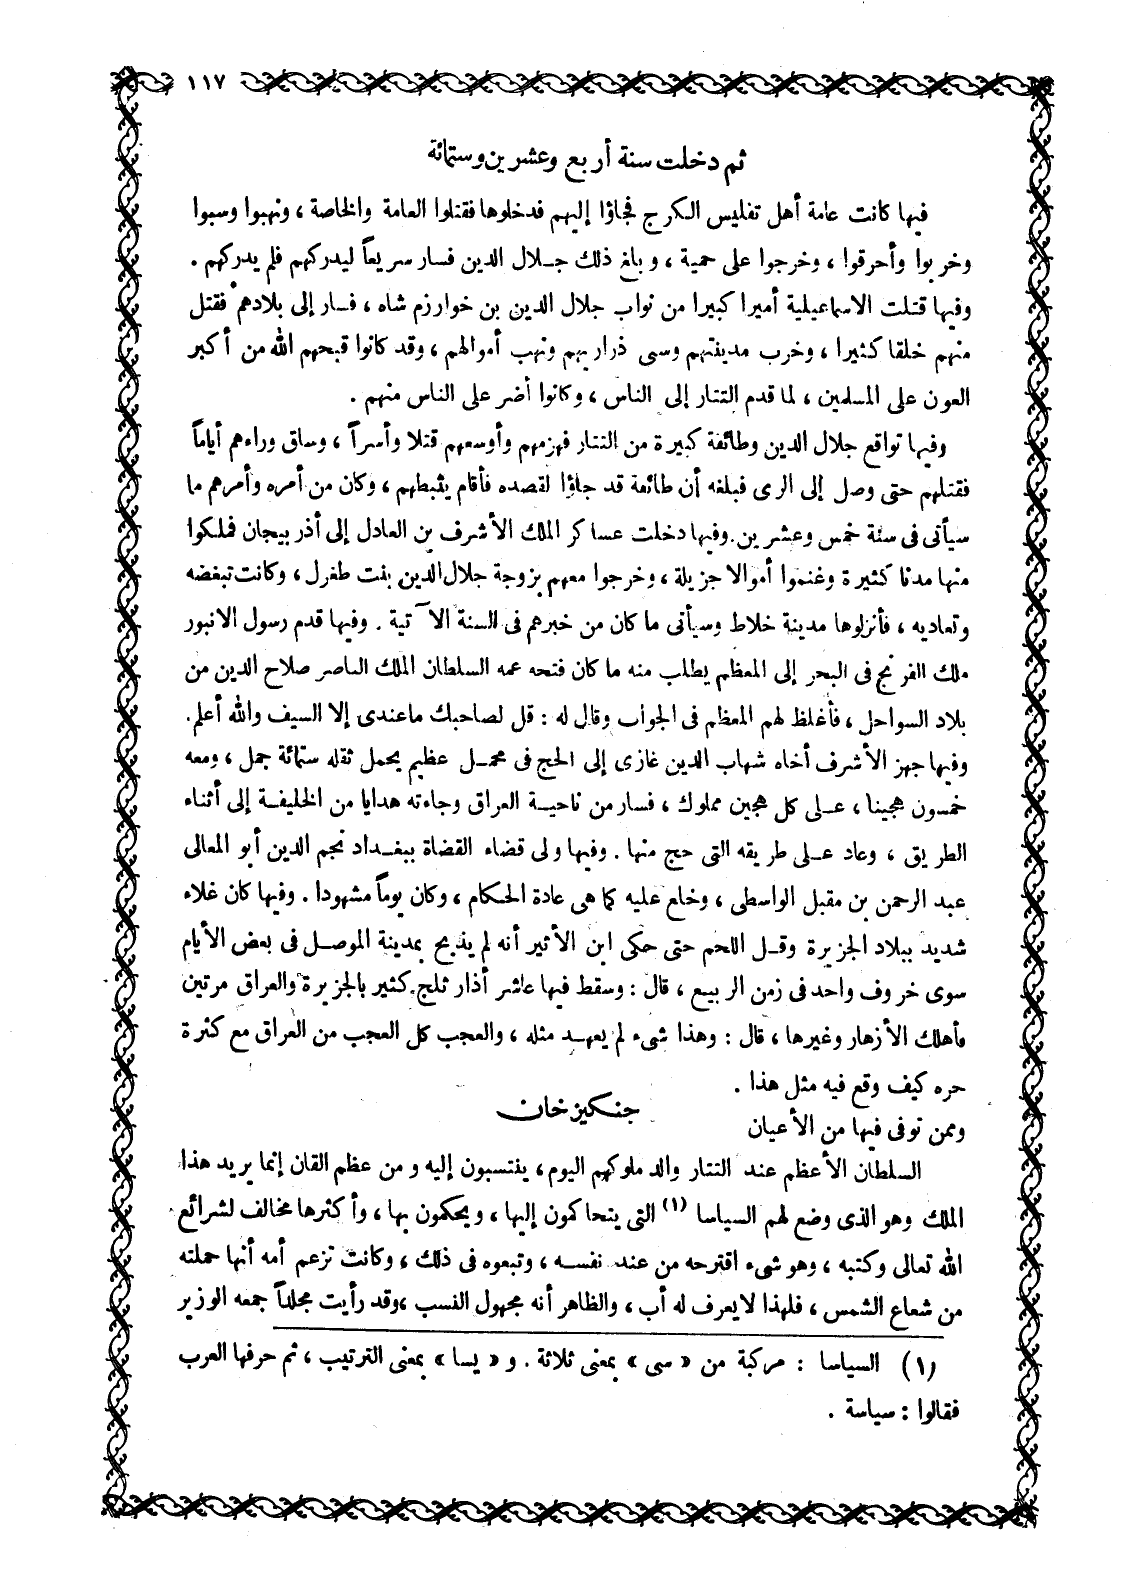 ١١٧
ثم دخلت سنة أربع وعشرين وستمائة
فيها كانت عامة أهل تفليس الكرج فجاؤا إليهم فدخلوها فقتلوا العامة والخاصة ، ونهبوا وسبوا
وخربوا وأحرقوا ، وخرجوا على حمية ، وبلغ ذلك جلال الدين فسار سريعاً ليدركهم فلم يدركهم .
وفيها قتلت الاسماعيلية أميرا كبيرا من نواب جلال الدين بن خوارزم شاه ، فسار إلى بلادهم فقتل
منهم خلقا كثيرا ، وخرب مدينتهم وسبى ذراريهم ونهب أموالهم ، وقد كانوا قبحهم الله من أكبر
العون على المسلمين ، لما قدم التتار إلى الناس ، وكانوا أضر على الناس منهم .
وفيها تواقع جلال الدين وطائفة كبيرة من التتار فهزمهم وأوسعهم قتلا وأسراً ، وساق وراءهم أياماً
فقتلهم حتى وصل إلى الرى فبلغه أن طائفة قد جاؤا لقصده فأقام يثبطهم ، وكان من أمره وأمرهم ما
سيأتى فى سنة خمس وعشرين. وفيها دخلت عساكر الملك الأشرف بن العادل إلى أذربيجان فملكوا
منها مدنا كثيرة وغنموا أموالا جزيلة ، وخرجوا معهم بزوجة جلال الدين بنت طغرل ، وكانت تبغضه
وتعاديه ، فأنزلوها مدينة خلاط وسيأتى ما كان من خبرهم فى السنة الآتية . وفيها قدم رسول الانبور
ملك الفرنج فى البحر إلى المعظم يطلب منه ما كان فتحه عمه السلطان الملك الناصر صلاح الدين من
بلاد السواحل ، فأغلظ لهم المعظم فى الجواب وقال له : قل لصاحبك ماعندى إلا السيف والله أعلم.
وفيها جهز الأشرف أخاه شهاب الدين غازى إلى الحج فى محمل عظيم يحمل ثقله ستمائة جمل ، ومعه
خمسون هجينا ، على كل هجين مملوك ، فسار من ناحية العراق وجاءته هدايا من الخليفة إلى أثناء
الطريق ، وعاد على طريقه التى حج منها . وفيها ولى قضاء القضاة ببغداد نجم الدين أبو المعالى
عبد الرحمن بن مقبل الواسطى ، وخلع عليه كما هى عادة الحكام ، وكان يوماً مشهودا . وفيها كان غلاء
شديد ببلاد الجزيرة وقل اللحم حتى حكى ابن الأثير أنه لم يذبح بمدينة الموصل فى بعض الأيام
سوى خروف واحد فى زمن الربيع ، قال : وسقط فيها عاشر أذار ثلج كثير بالجزيرة والعراق مرتين
فأهلك الأزهار وغيرها ، قال : وهذا شىء لم يعهد مثله ، والعجب كل العجب من العراق مع كثرة
حره كيف وقع فيه مثل هذا .
وممن توفى فيها من الأعيان
جنكيز خان
السلطان الأعظم عند التتار والد ملوكهم اليوم ، ينتسبون إليه ومن عظم القان إنما يريد هذا
الملك وهو الذى وضع لهم السياسا (١) التى يتحاكمون إليها ، ويحكمون بها ، وأكثرها مخالف لشرائع
الله تعالى وكتبه ، وهو شىء اقترحه من عند نفسه ، وتبعوه فى ذلك ، وكانت تزعم أمه أنها حملته
من شعاع الشمس ، فلهذا لايعرف له أب ، والظاهر أنه مجهول النسب ،وقد رأيت مجلداً جمعه الوزير
(١) السياسا : مركبة من « سى » بمعنى ثلاثة . و « يسا » بمعنى الترتيب ، ثم حرفها العرب
فقالوا : سياسة .